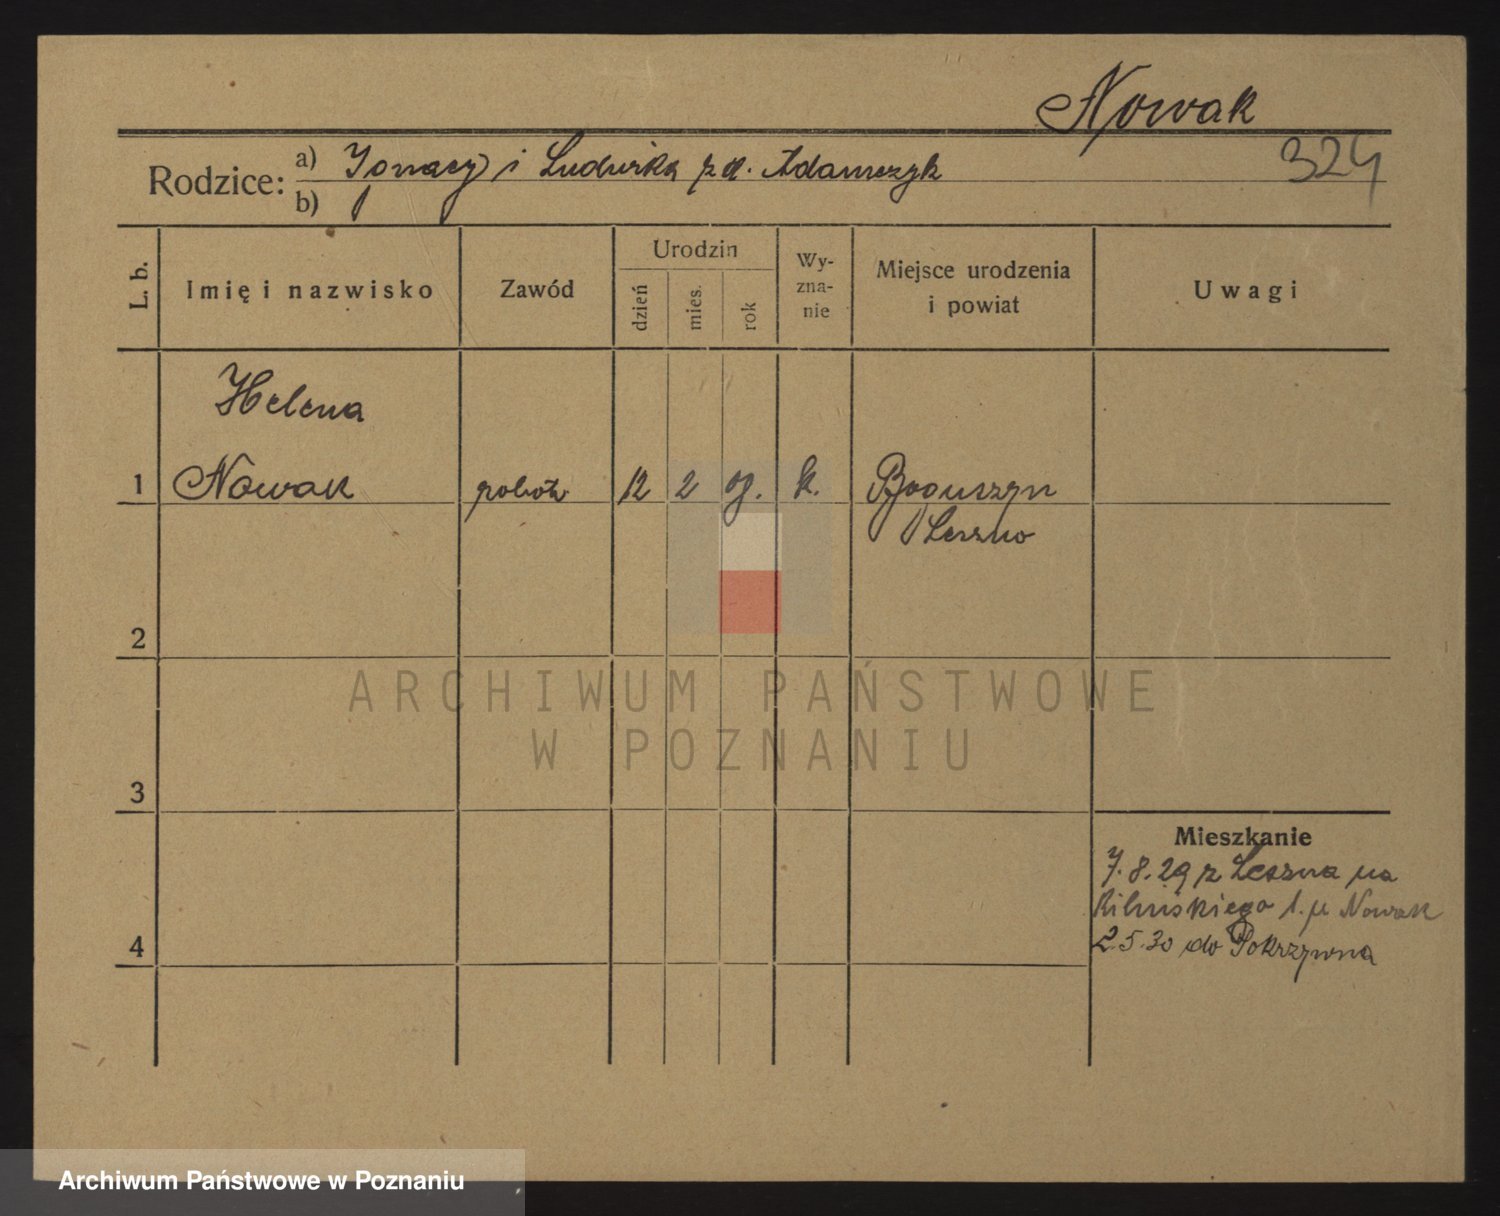 Nowak
324
Rodzice: a) Ignacy i Ludwika zd. Adamczyk
b)
L. b.
Imię i nazwisko
Zawód
Urodzin
dzień
mies.
rok
Wy-
zna-
nie
Miejsce urodzenia
i powiat
Uwagi
Helena
1 Nowak robotn. 12 2 09. k. Boguszyn
Leszno
2
3
4
Mieszkanie
7.8.29 z Leszna na
Kilińskiego 1. u Nowak
2.5.30 do Pokrzywna
ARCHIWUM PAŃSTWOWE
W POZNANIU
Archiwum Państwowe w Poznaniu